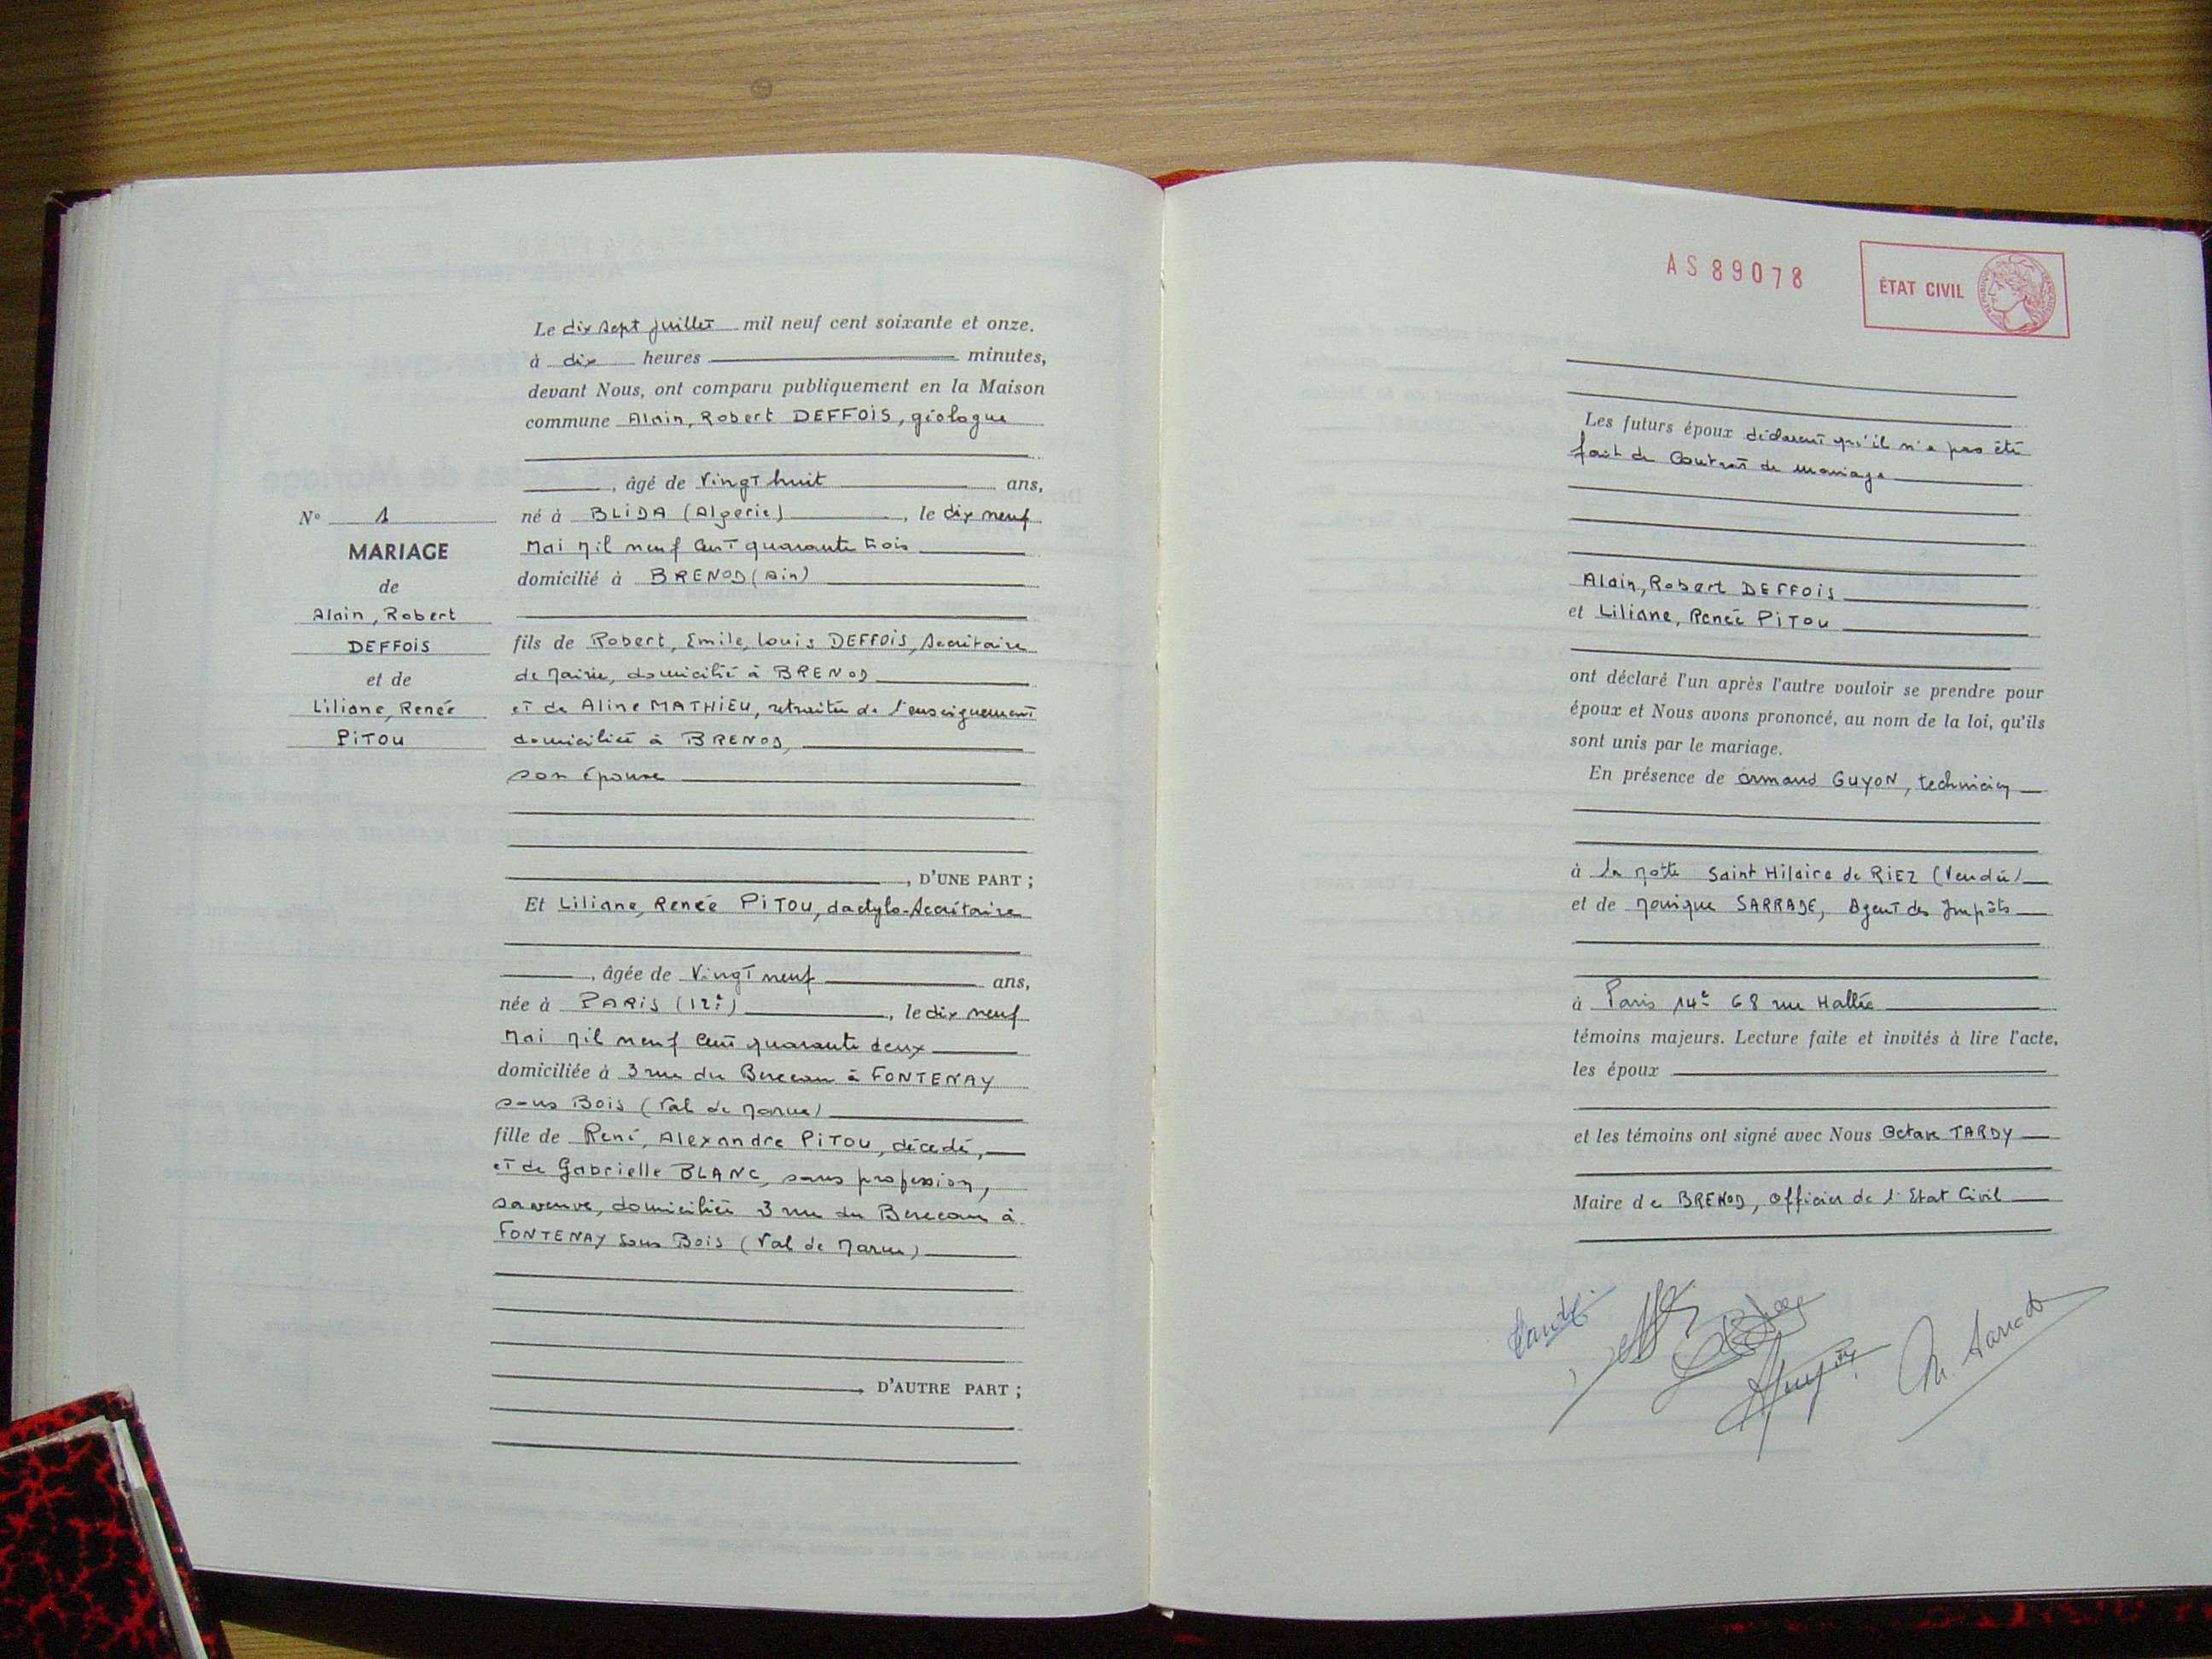 Le dix sept juillet mil neuf cent soixante et onze.
à dix heures minutes,
devant Nous, ont comparu publiquement en la Maison
commune Alain, Robert DEFFOIS, géologue
, âgé de Vingt huit ans,
né à BLIDA (Algérie), le dix neuf
Mai Mil neuf Cent quarante trois
domicilié à BRENOD (Ain)
fils de Robert, Emile, Louis DEFFOIS, Secrétaire
de Mairie, domicilié à BRENOD
et de Aline MATHIEU, retraitée de l'enseignement
domiciliée à BRENOD,
son épouse
, D'UNE PART ;
Et Liliane, Renée PITOU, dactylo-Secrétaire
, âgée de Vingt neuf ans,
née à PARIS (12e), le dix neuf
Mai Mil neuf Cent quarante deux
domiciliée à 3 rue du Berceau à FONTENAY
sous Bois (Val de Marne)
fille de René, Alexandre PITOU, décédé,
et de Gabrielle BLANC, sans profession,
sa veuve, domiciliée 3 rue du Berceau à
FONTENAY sous Bois (Val de Marne)
, D'AUTRE PART ;
N° 1
MARIAGE
de
Alain, Robert
DEFFOIS
et de
Liliane, Renée
PITOU
AS 89078
ÉTAT CIVIL
Les futurs époux déclarent qu'il n'a pas été
fait de Contrat de mariage
Alain, Robert DEFFOIS
et Liliane, Renée PITOU
ont déclaré l'un après l'autre vouloir se prendre pour
époux et Nous avons prononcé, au nom de la loi, qu'ils
sont unis par le mariage.
En présence de Armand GUYON, technicien
à La Motte Saint Hilaire de RIEZ (Vendée)
et de Monique SARRADE, Agent des Impôts
à Paris 14e 68 rue Hallée
témoins majeurs. Lecture faite et invités à lire l'acte,
les époux
et les témoins ont signé avec Nous Octave TARDY
Maire de BRENOD, Officier de l'Etat Civil